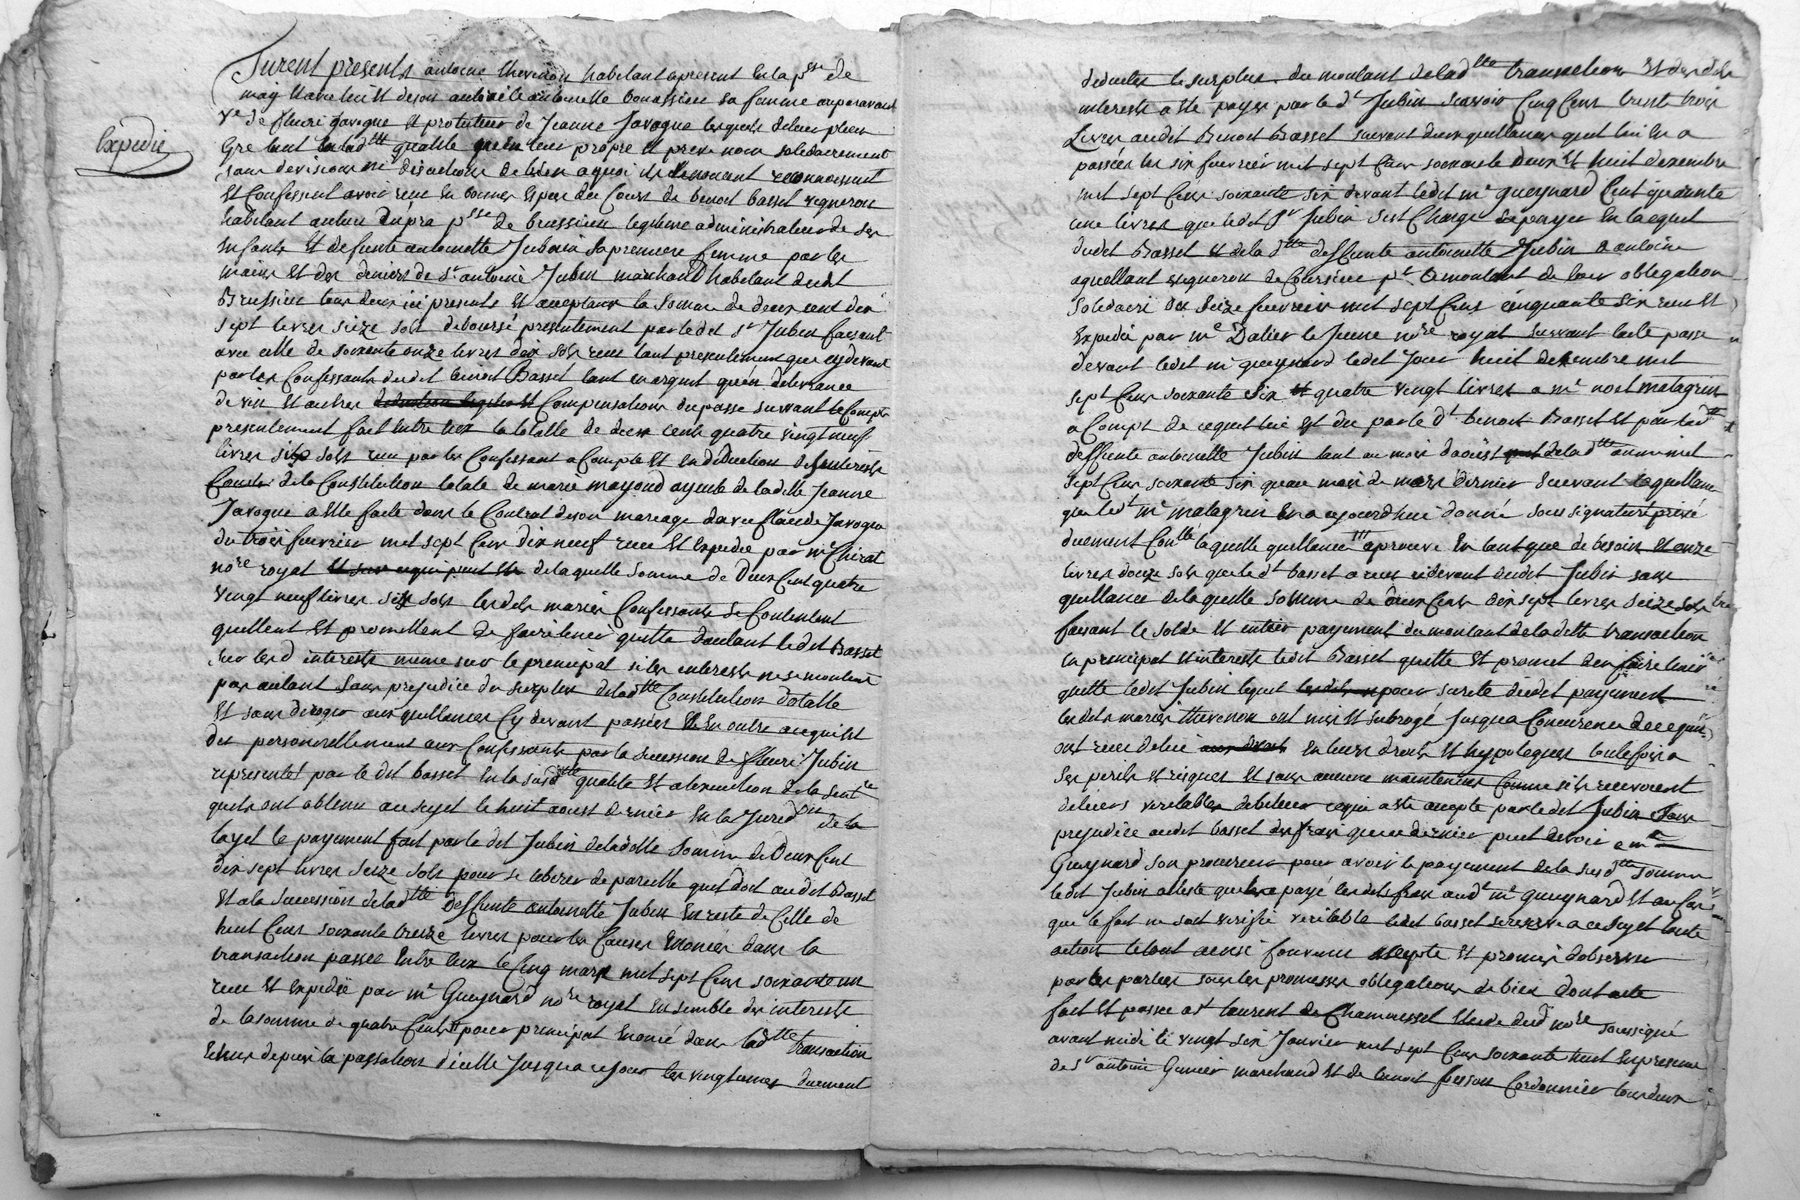 furent presents antoine thevenon habitant apresent en la psse de
et de son autorité antoinette bonassieu sa femme auparavant
ve de fleuri Javogue et protuteur de Jeanne Javogue lesquels de leur plein
Expedié
Gré tant en lad tte qualité qu'en leur propre et privé nom solidairement
sans division ni discution de bien a quoi ils renoncent reconnoissent
et Confessent avoir receu en bonnes especes du Cours de benoit basset vigneron
habitant au lieu du pra psse de brussieu legitime administrateur de ses
enfants et de funte antoinette Jubin sa premiere femme par les
mains et des deniers de sr antoine Jubin marchand habitant dudit
Brussieu tous deux ici presents et acceptans la somme de deux cent dix
sept livres seize sols deboursé presentement par ledit sr Jubin faisant
avec celle de soixante onze livres dix sols receu tant presentement que cy devant
par les Confessants dudit benoit Basset tant en argent qu'en delivrance
de vin et autres Compensations du passé suivant le Compte
presentement fait entre eux la totalle de deux cents quatre vingt neuf
livres six sols receu par les Confessant a Compte et en deduction des interests
de la Constitution totale de marie mayoud ayeule de ladite Jeanne
Javogue a elle faite dans le Contrat de son mariage avec Claude Javogue
du trois fevrier mil sept Cent dix neuf receu et expedié par me Chirat
nore royal de laquelle somme de Deux Cent quatre
vingt neuf livres six sols lesdits mariés Confessants se Contentent
quittent et promettent de faire tenir quitte d'autant ledit Basset
sur lesd interests meme sur le principal si les interests ne se montent
pas autant sans prejudice du surplus de lad tte Constitution dotalle
et sans deroger aux quittances cy devant passées en outre acquis et
dus personnellement aux Confessants par la succession de fleuri Jubin
representés par le dit basset en la susd tte qualité et a l'execution de la sentce
qu'ils ont obtenu au sujet le huit aoust dernier en la Juridon de la
le payement fait par le dit Jubin de ladite somme de Deux Cent
dix sept livres seize sols pour se liberer de pareille qu'il doit audit Basset
et a la succession de lad tte deffunte antoinette Jubin en reste de Celle de
huit Cent soixante treize livres pour les Causes enoncées dans la
transaction passée entre eux le Cinq mars mil sept Cent soixante un
receu et expedié par me Gueynard nore royal ensemble des interests
de la somme de quatre Cents pour principal enoncé dans lad tte transaction
echus depuis la passation d'icelle Jusqu'a ce jour les vingtiemes duement
deduits le surplus du montant de lad tte transaction et desdits
interests a été payé par le dt Jubin scavoir Cinq Cent trent trois
Livres audit Benoit Basset suivant deux quittances qu'il lui en a
passées les six fevrier mil sept Cent soixante deux et huit decembre
mil sept Cent soixante six devant ledit me gueynard Cent quarante
une livres que ledit sr Jubin s'est Chargé de payer en l'acquit
dudit Basset et de la dtte deffunte antoinette Jubin a antoine
aquettant vigneron de Coursieu pr le montant de leur obligation
solidaire du seize fevrier mil sept Cent cinquante six receu et
expedié par me Dalier le Jeune nore royal suivant l'acte passé
devant ledit me gueynard ledit Jour huit decembre mil
sept Cent soixante six quatre vingt livres a me noel matagrin
a Compte de ce qui lui est du par le dt benoit Basset et par lad tte
deffunte antoinette Jubin tant au mois d'aoust de lad tte année mil
sept Cent soixante six qu'au mois de mars dernier suivant la quittance
que ledt me matagrin en a aujourd'hui donné sous signature privée
duement Contlé laquelle quittance approuve en tant que de besoin et onze
livres douze sols que le dt basset a receu cidevant dudit Jubin sans
quittance de laquelle somme de deux Cent dix sept livres seize sols
faisant le solde et entier payement du montant de ladite transaction
en principal et interests ledit Basset quitte et promet de faire tenir
quitte ledit Jubin lequel pour sureté dudit payement
lesdits mariés thevenon ont mis et subrogé Jusqu'a Concurence de ce qu'ils
ont receu de lui en leurs droits et hypoteques toutefois a
ses perils et risques et sans aucune maintenue Comme s'ils recevoient
deniers veritables debiteur ce qui a été accepté par ledit Jubin sans
prejudice audit basset des frais que ce dernier peut devoir a me
Gueynard son procureur pour avoir le payement de la susd tte somme
ledit Jubin atteste que payé lesdits frais aud me gueynard et au cas
que le fait ne soit verifié veritable ledit basset se reserve a ce sujet toute
action le tout ainsi Convenu accepté et promis d'observer
par les parties sous les promesses obligations de biens dont acte
fait et passé a st laurent de Chamousset etude dud nore soussigné
avant midi le vingt six Janvier mil sept Cent soixante huit en presence
de sr antoine marchand et de benoit Cordonnier tous deux